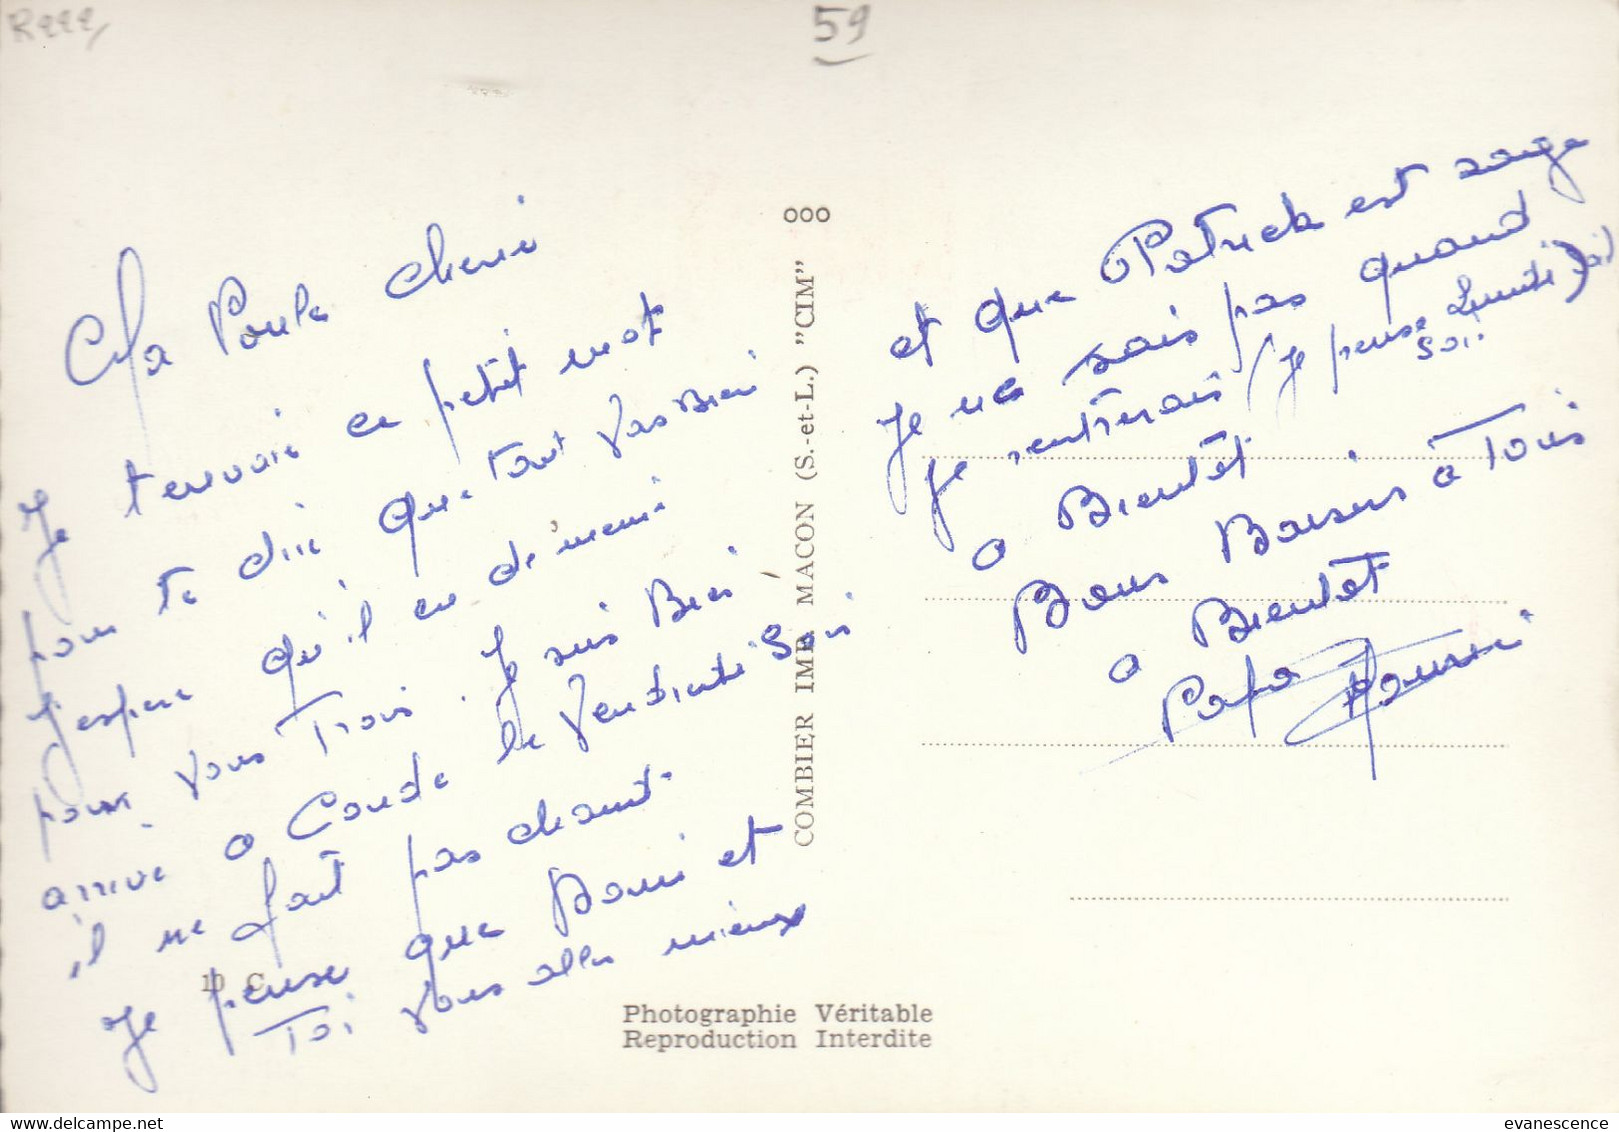 59
Ma Poule cherie
Je tenvoie ce petit mot
pour te dire que tout vas Bien
J'espere qu'il en de meme
pour vous Trois. Je suis Bien
arrive a Conde le Vendredi Soir
il ne fait pas chaud.
Je pense que Dani et
Toi vous aller mieux
et que Patrick est sage
Je ne sais pas quand
je rentrerais (je pense Lundi)
soir.
a Bientôt.
Bons Baisers à Tous
a Bientôt
Papa
ooo
COMBIER IMP. MACON (S.-et-L.) "CIM"
10 C
Photographie Véritable
Reproduction Interdite
evanescence